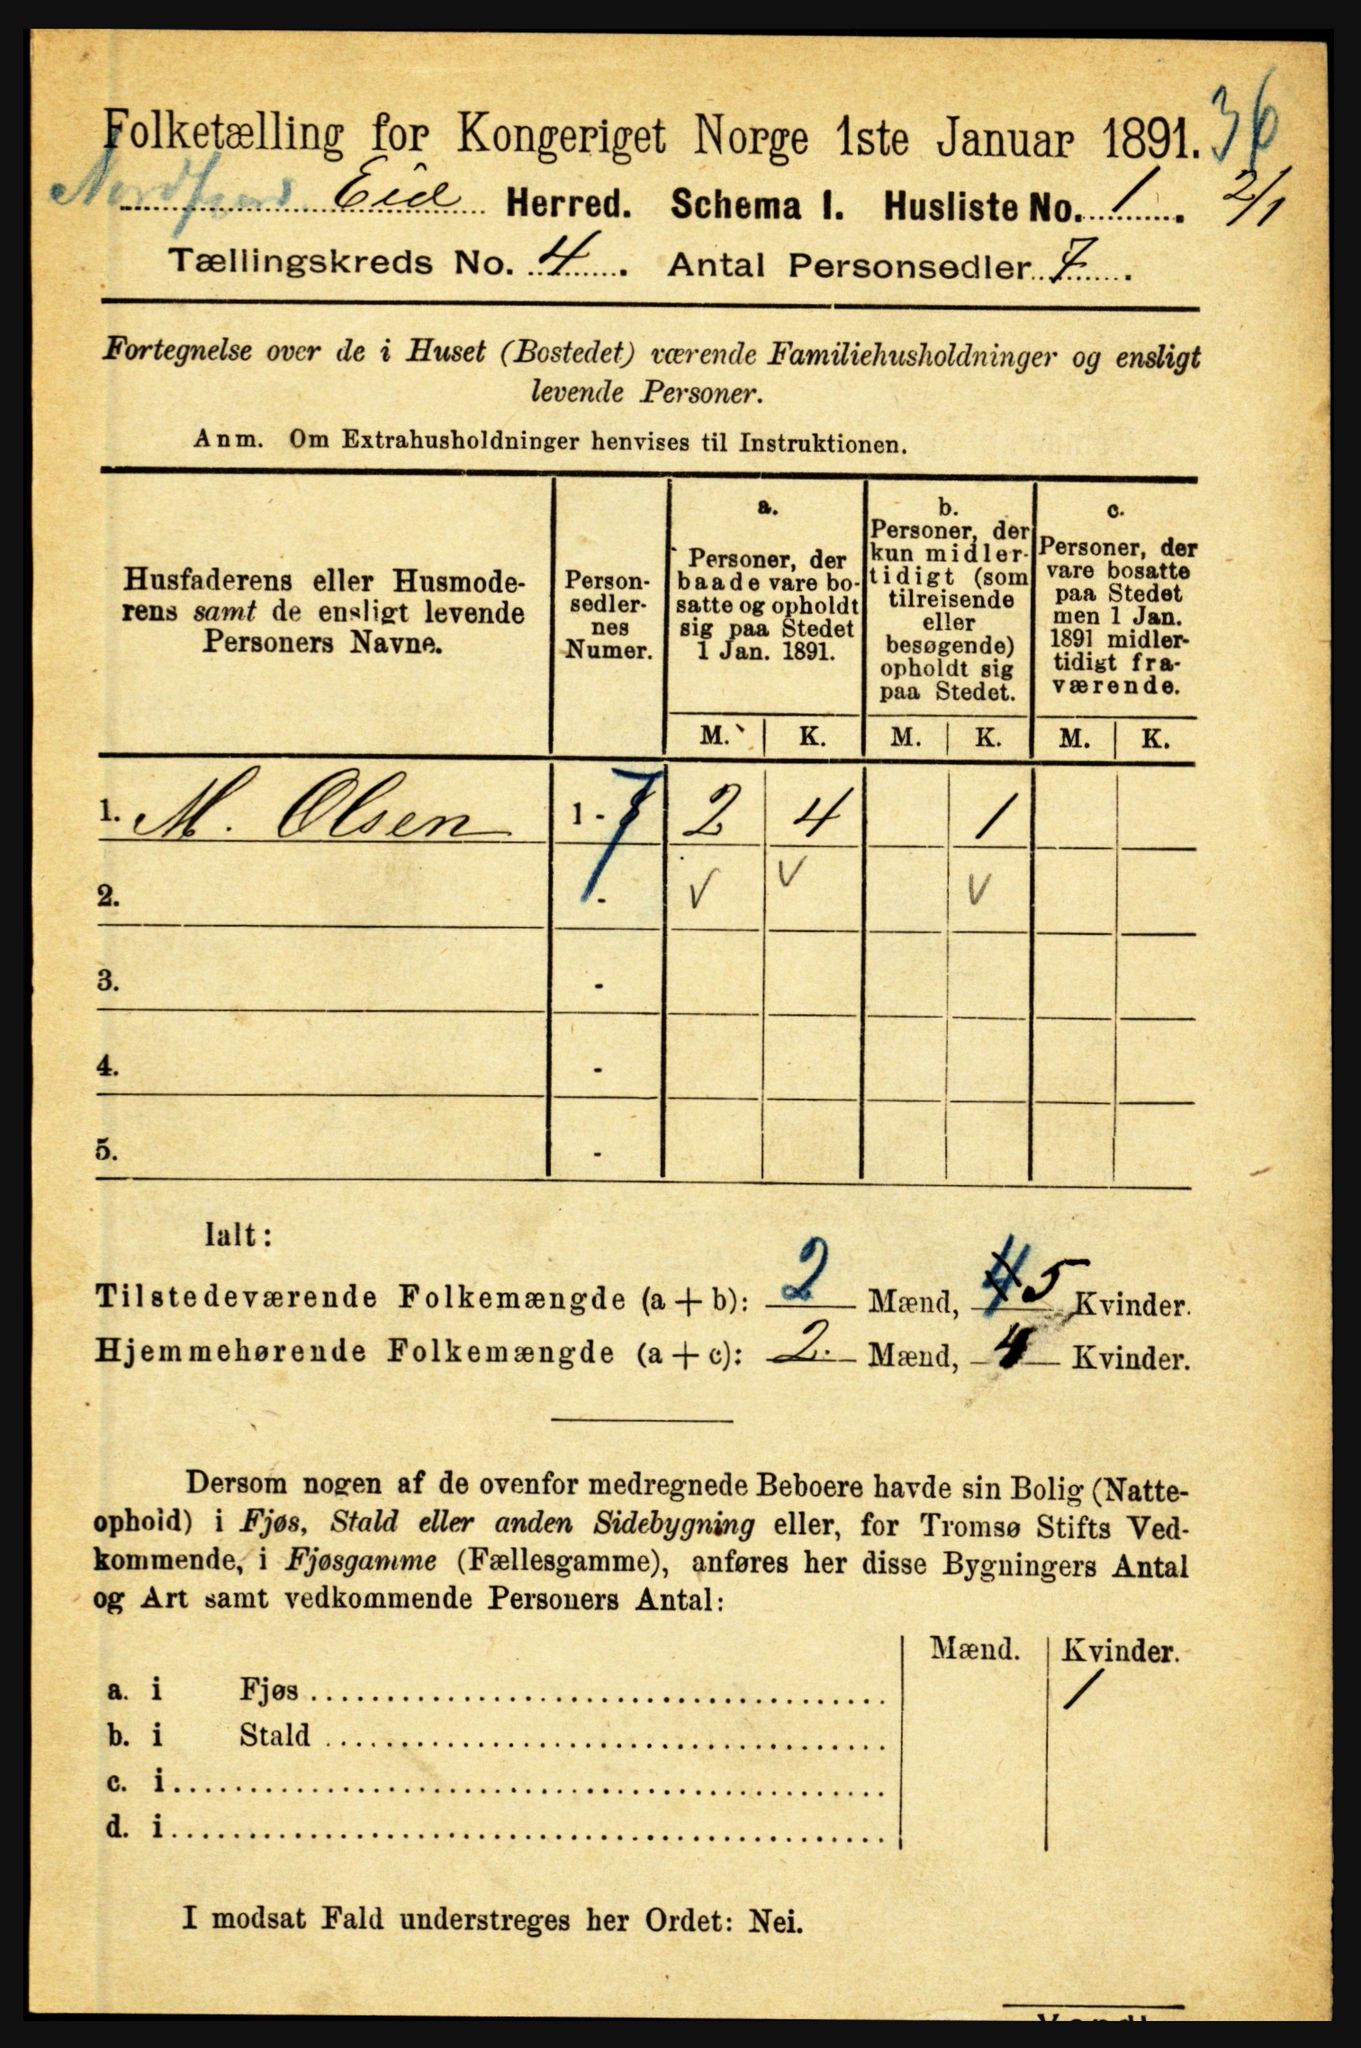 36
Folketælling for Kongeriget Norge 1ste Januar 1891.
Nordfjord Eid Herred. Schema I. Husliste No. 1. 2/1
Tællingskreds No. 4. Antal Personsedler 7.
Fortegnelse over de i Huset (Bostedet) værende Familiehusholdninger og ensligt
levende Personer.
Anm. Om Extrahusholdninger henvises til Instruktionen.
Husfaderens eller Husmode-
rens samt de ensligt levende
Personers Navne.
Person-
sedler-
nes
Numer.
a.
Personer, der
baade vare bo-
satte og opholdt
sig paa Stedet
1 Jan. 1891.
b.
Personer, der
kun midler-
tidigt (som
tilreisende
eller
besøgende)
opholdt sig
paa Stedet.
c.
Personer, der
vare bosatte
paa Stedet
men 1 Jan.
1891 midler-
tidigt fra-
værende.
M. K. M. K. M. K.
1. M. Olsen 1 - 7 2 4 1
2. - ✓ ✓ ✓
3. -
4. -
5. -
Ialt:
Tilstedeværende Folkemængde (a + b): 2 Mænd, 4 5 Kvinder.
Hjemmehørende Folkemængde (a + c): 2. Mænd, 4 Kvinder.
Dersom nogen af de ovenfor medregnede Beboere havde sin Bolig (Natte-
ophold) i Fjøs, Stald eller anden Sidebygning eller, for Tromsø Stifts Ved-
kommende, i Fjøsgamme (Fællesgamme), anføres her disse Bygningers Antal
og Art samt vedkommende Personers Antal:
Mænd. Kvinder.
a. i Fjøs 1
b. i Stald
c. i
d. i
I modsat Fald understreges her Ordet: Nei.